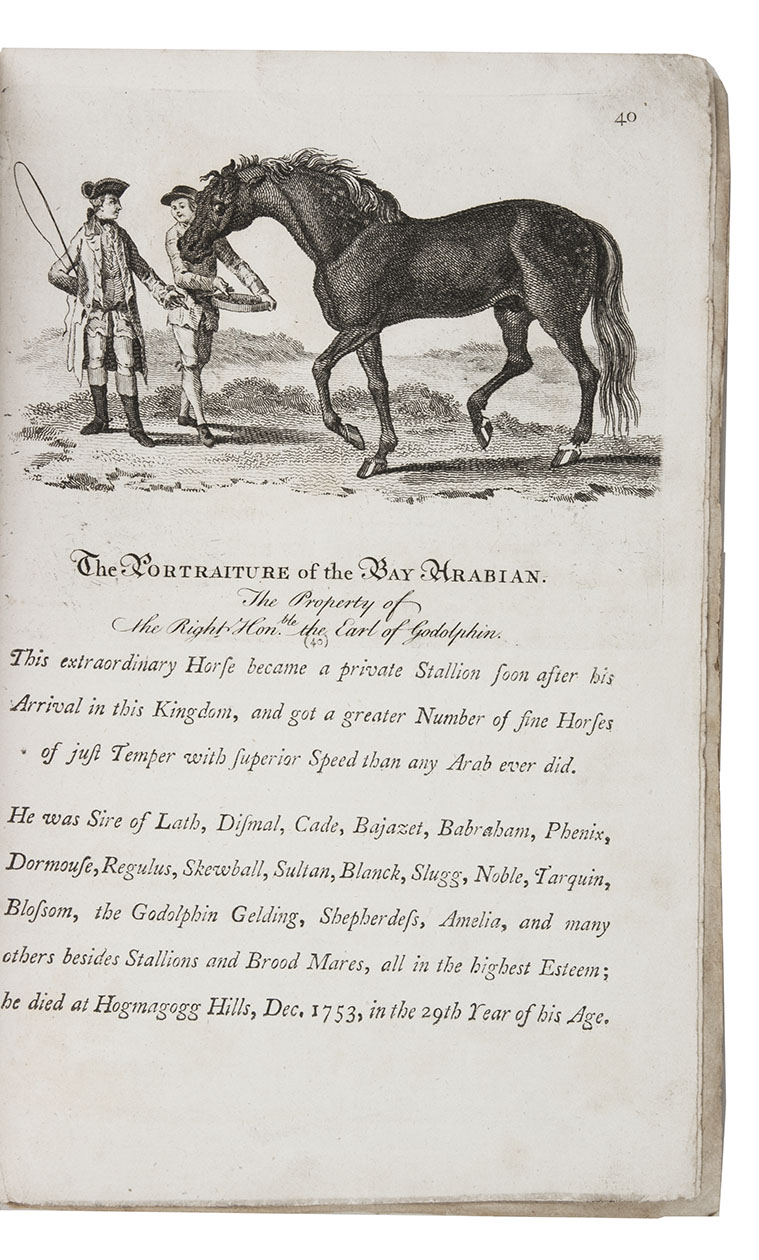 40
The PORTRAITURE of the BAY ARABIAN.
The Property of
the Right Hon.ble the Earl of Godolphin.
(40)
This extraordinary Horſe became a private Stallion ſoon after his
Arrival in this Kingdom, and got a greater Number of fine Horſes
of juſt Temper with ſuperior Speed than any Arab ever did.
He was Sire of Lath, Diſmal, Cade, Bajazet, Babraham, Phenix,
Dormouſe, Regulus, Skewball, Sultan, Blanck, Slugg, Noble, Tarquin,
Bloſsom, the Godolphin Gelding, Shepherdeſs, Amelia, and many
others besides Stallions and Brood Mares, all in the highest Esteem;
he died at Hogmagogg Hills, Dec. 1753, in the 29th Year of his Age.